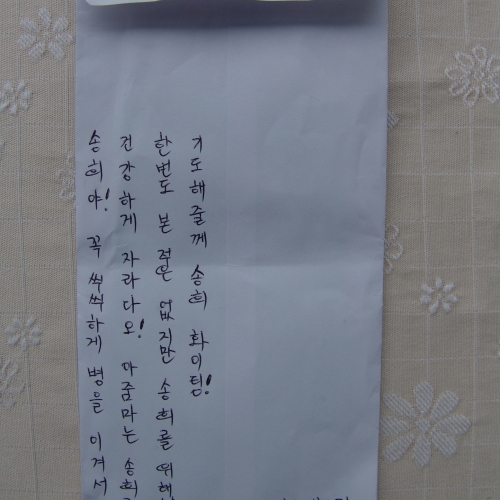 송희야! 꼭 씩씩하게 병을 이겨서
건강하게 자라다오! 아줌마는 송희
한번도 본 적은 없지만 송희를 위해
기도해줄께 송희 화이팅!